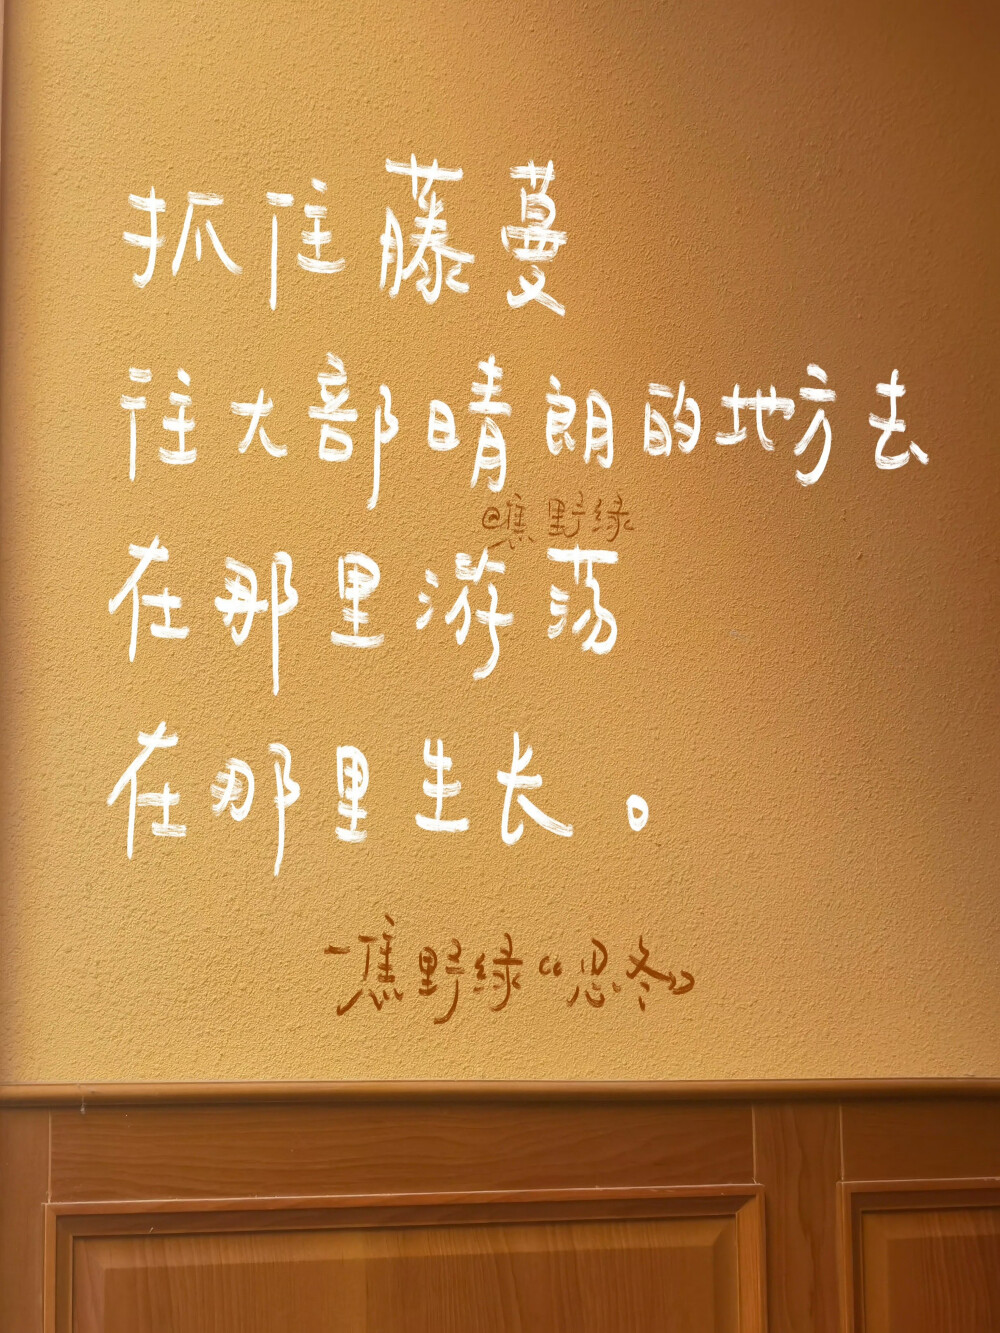 抓住藤蔓
往大部晴朗的地方去
@焦野绿
在那里游荡
在那里生长。
—焦野绿“忍冬”